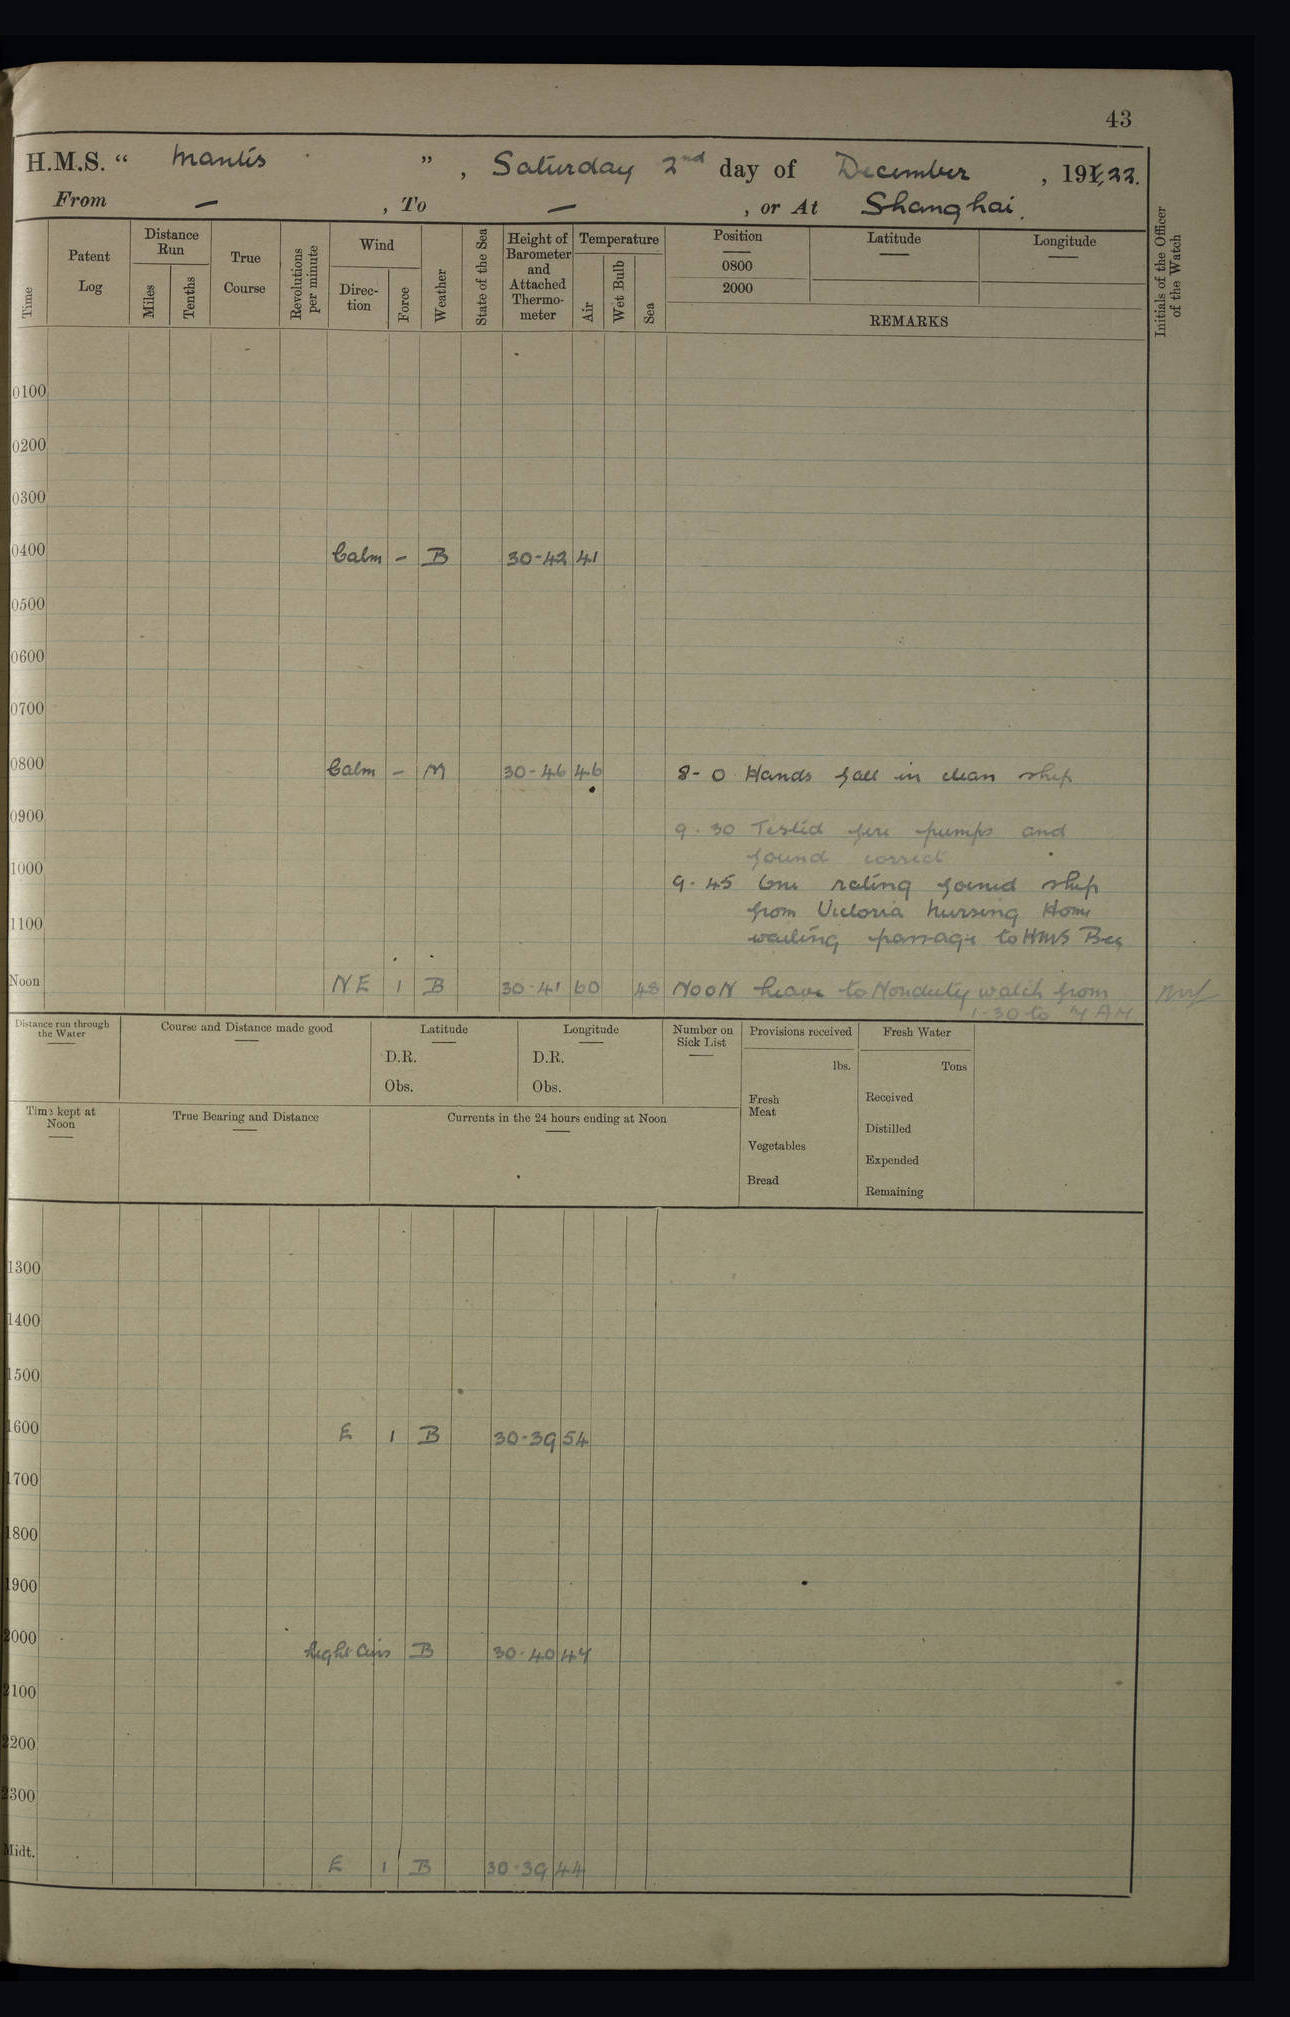 43
H.M.S. “ Mantis ” , Saturday 2nd day of December , 191, 22.
From — , To — , or At Shanghai.
Time
Patent Log
Distance Run
Miles
Tenths
True Course
Revolutions per minute
Wind
Direc-tion
Force
Weather
State of the Sea
Height of Barometer and Attached Thermo-meter
Temperature
Air
Wet Bulb
Sea
Position
0800
2000
Latitude
Longitude
REMARKS
Initials of the Officer of the Watch
0100
0200
0300
0400 Calm – B 30-42 41
0500
0600
0700
0800 Calm – M 30-46 46 8-0 Hands fall in clean ship
0900 9.30 Tested fire pumps and
found correct
1000 9.45 One rating joined ship
from Victoria Nursing Home
1100 waiting passage to HMS Bee
Noon NE 1 B 30-41 60 48 NOON Leave to Nonduty watch from
1-30 to 7 AM
Distance run through the Water
Course and Distance made good
Latitude
D.R.
Obs.
Longitude
D.R.
Obs.
Number on Sick List
Provisions received
lbs.
Fresh Meat
Vegetables
Bread
Fresh Water
Tons
Received
Distilled
Expended
Remaining
Time kept at Noon
True Bearing and Distance
Currents in the 24 hours ending at Noon
1300
1400
1500
1600 E 1 B 30-39 54
1700
1800
1900
2000 Light Airs B 30-40 47
2100
2200
2300
Midt. E 1 B 30-39 44